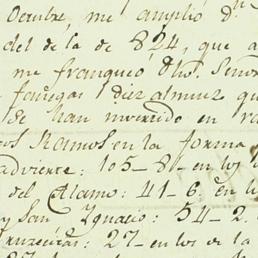 Octubre, me amplió dn
del de la de 824, que a
me franqueó dho. Señor
fanegas diez almuz qu
se han invertido en va
os Ramos en la forma
adviente: 105-8- en los
del Alamo: 41-6. en l
y San Ygnacio: 54-2.
Cruzecitas: 27- en los de la